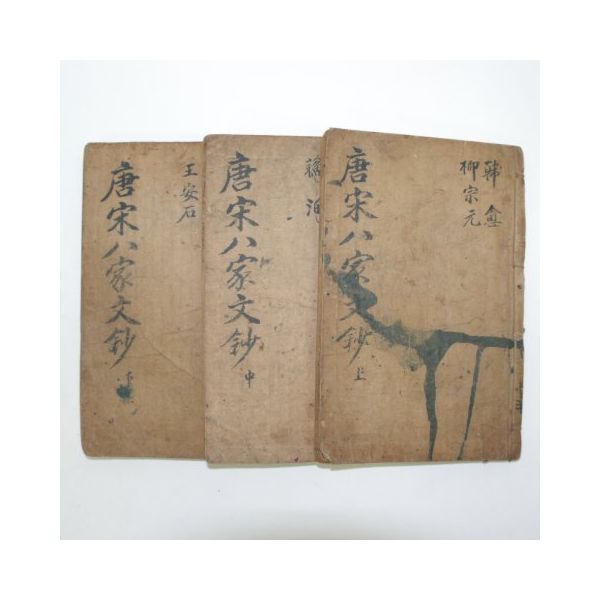 韓愈
柳宗元
唐宋八家文鈔 上
蘇洵
唐宋八家文鈔 中
王安石
唐宋八家文鈔 下